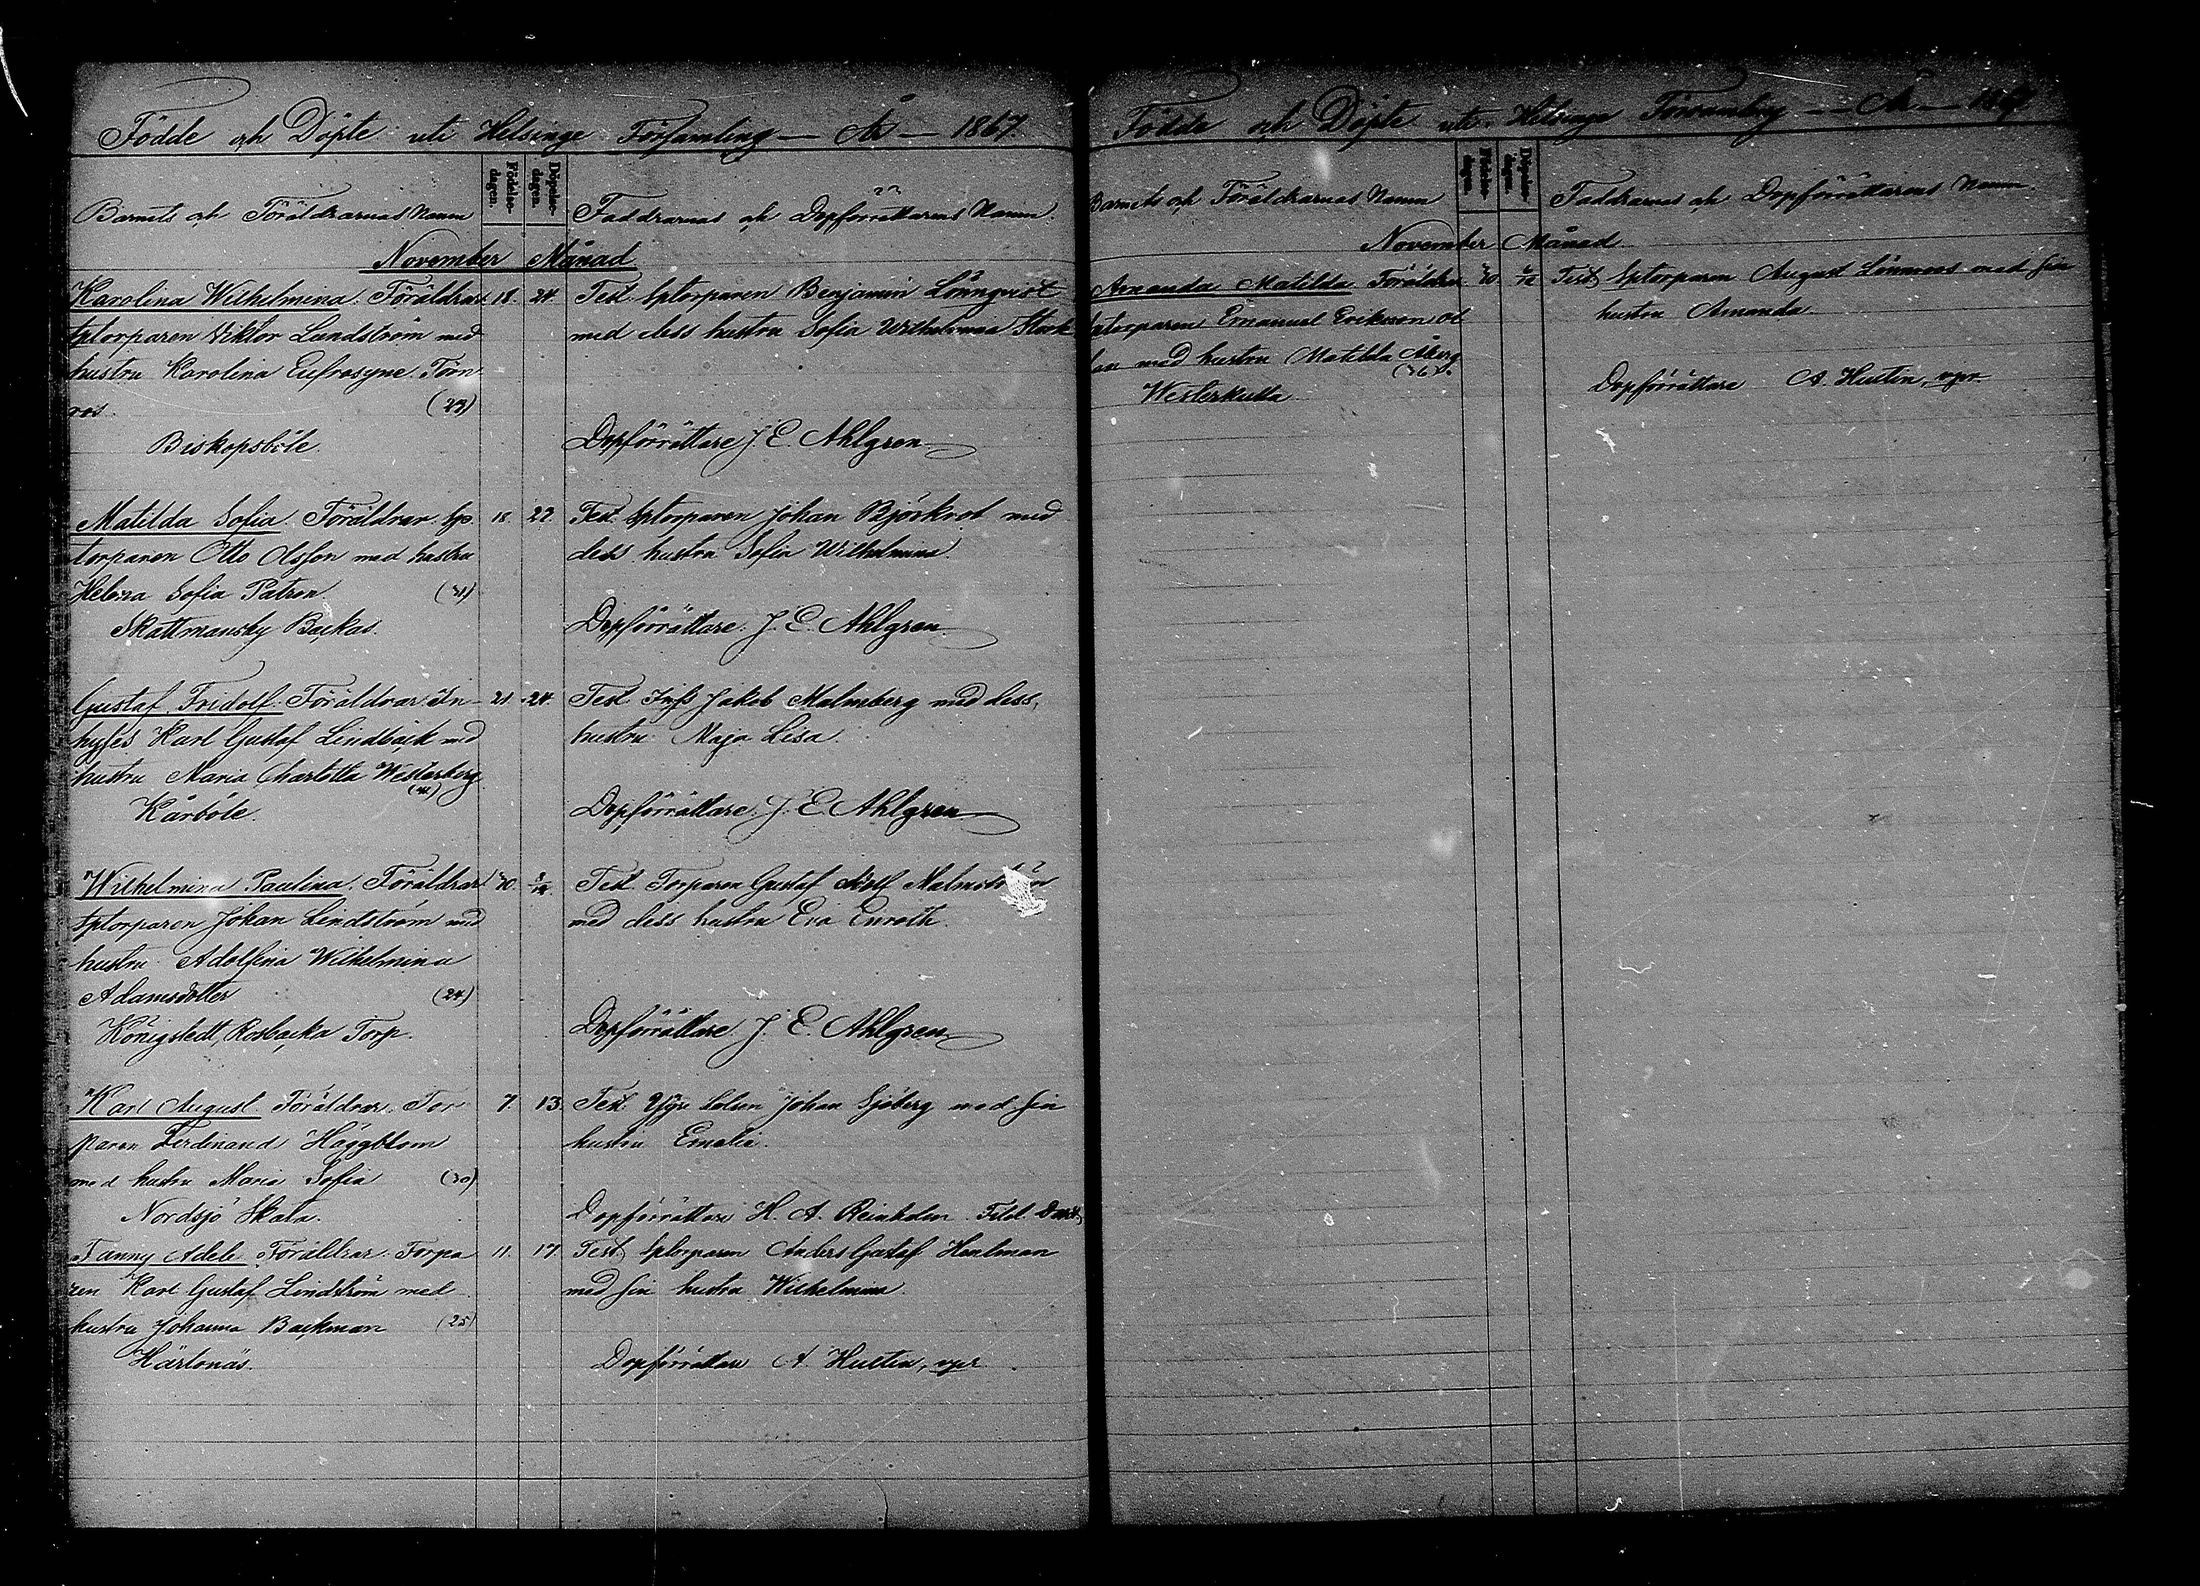 Födde och Döpte uti Helsinge Församling — År — 1867.
Barnets och Föräldrarnas Namn
Födelse-
dagen.
Döpelse-
dagen.
Faddrarnas och Dopförrättarens Namn.
November Månad
Karolina Wilhelmina. Föräldrar 18. 24. Test. Sptorparen Benjamin Lönnqvist
Sptorparen Viktor Lundström med med dess hustru Sofia Wilhelmina
hustru Karolina Eufrosyne Törn
ros. (23)
Biskopsböle. Dopförrättare J. E. Ahlgren
Matilda Sofia. Föräldrar Sp. 18. 22. Test. Sptorparen Johan Björkrot med
torparen Otto Olsson med hustru dess hustru Sofia Wilhelmina.
Helena Sofia Patron. (31)
Skattmansby Backas. Dopförrättare J. E. Ahlgren
Gustaf Fridolf. Föräldrar In- 21. 24. Test. Inhs Jakob Malmberg med dess
hyses Karl Gustaf Lindbäck med hustru Maja Lisa
hustru Maria Charlotta Westerberg
Kårböle. Dopförrättare J. E. Ahlgren
Wilhelmina Paulina. Föräldrar 30. Test. Torparen Gustaf Adolf Malmström
Sptorparen Johan Lindström med med dess hustru Eva Enroth.
hustru Adolfina Wilhelmina
Adamsdotter (24)
Königstedt, Rosbacka Torp. Dopförrättare J. E. Ahlgren
Karl August Föräldrar Tor 7. 13. Test. Johan Sjöberg med sin
paren Ferdinand Häggblom hustru Emelie.
med hustru Maria Sofia (30)
Nordsjö Skata. Dopförrättare H. A. Reinholm
Fanny Adele. Föräldrar Torpa 11. 17. Test. Sptorparen Anders Gustaf Hentman
ren Karl Gustaf Lindström med med sin hustru Wilhelmina.
hustru Johanna Backman (25)
Härtonäs. Dopförrättare A. Hultin, vpr
Födde och Döpte uti Helsinge Församling — År — 1867
Barnets och Föräldrarnas Namn
Födelse-
dagen.
Döpelse-
dagen.
Faddrarnas och Dopförrättarens Namn.
November Månad
Amanda Matilda Föräldrar 30 Test. Sptorparen August Lönnroos med sin
Sptorparen Emanuel Eriksson hustru Amanda
med hustru Matilda Åberg
(36). Dopförrättare A. Hultin, vpr.
Westerkulla